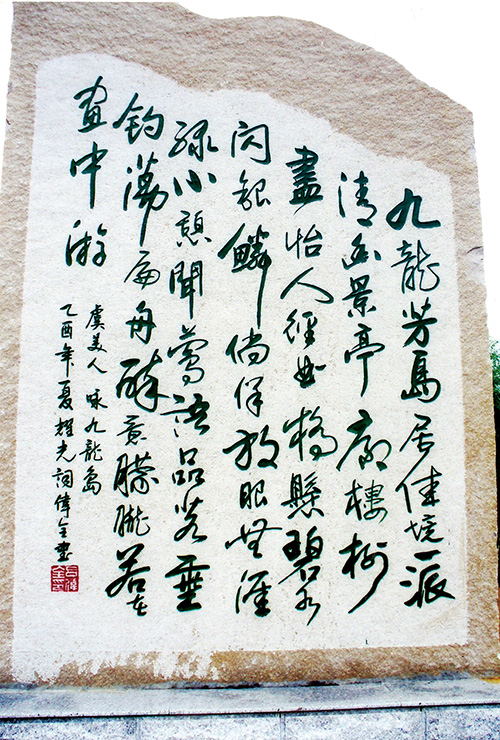 九龍芳島居佳境一派
清幽景亭廊樓榭
盡怡人徑曲橋懸碧水
閃銀鱗徜徉放眼無涯
綠小憩聞鶯語品茗垂
釣蕩扁舟醉意朦朧若在
畫中游
虞美人 咏九龍島
乙酉年夏耀光詞偉全書